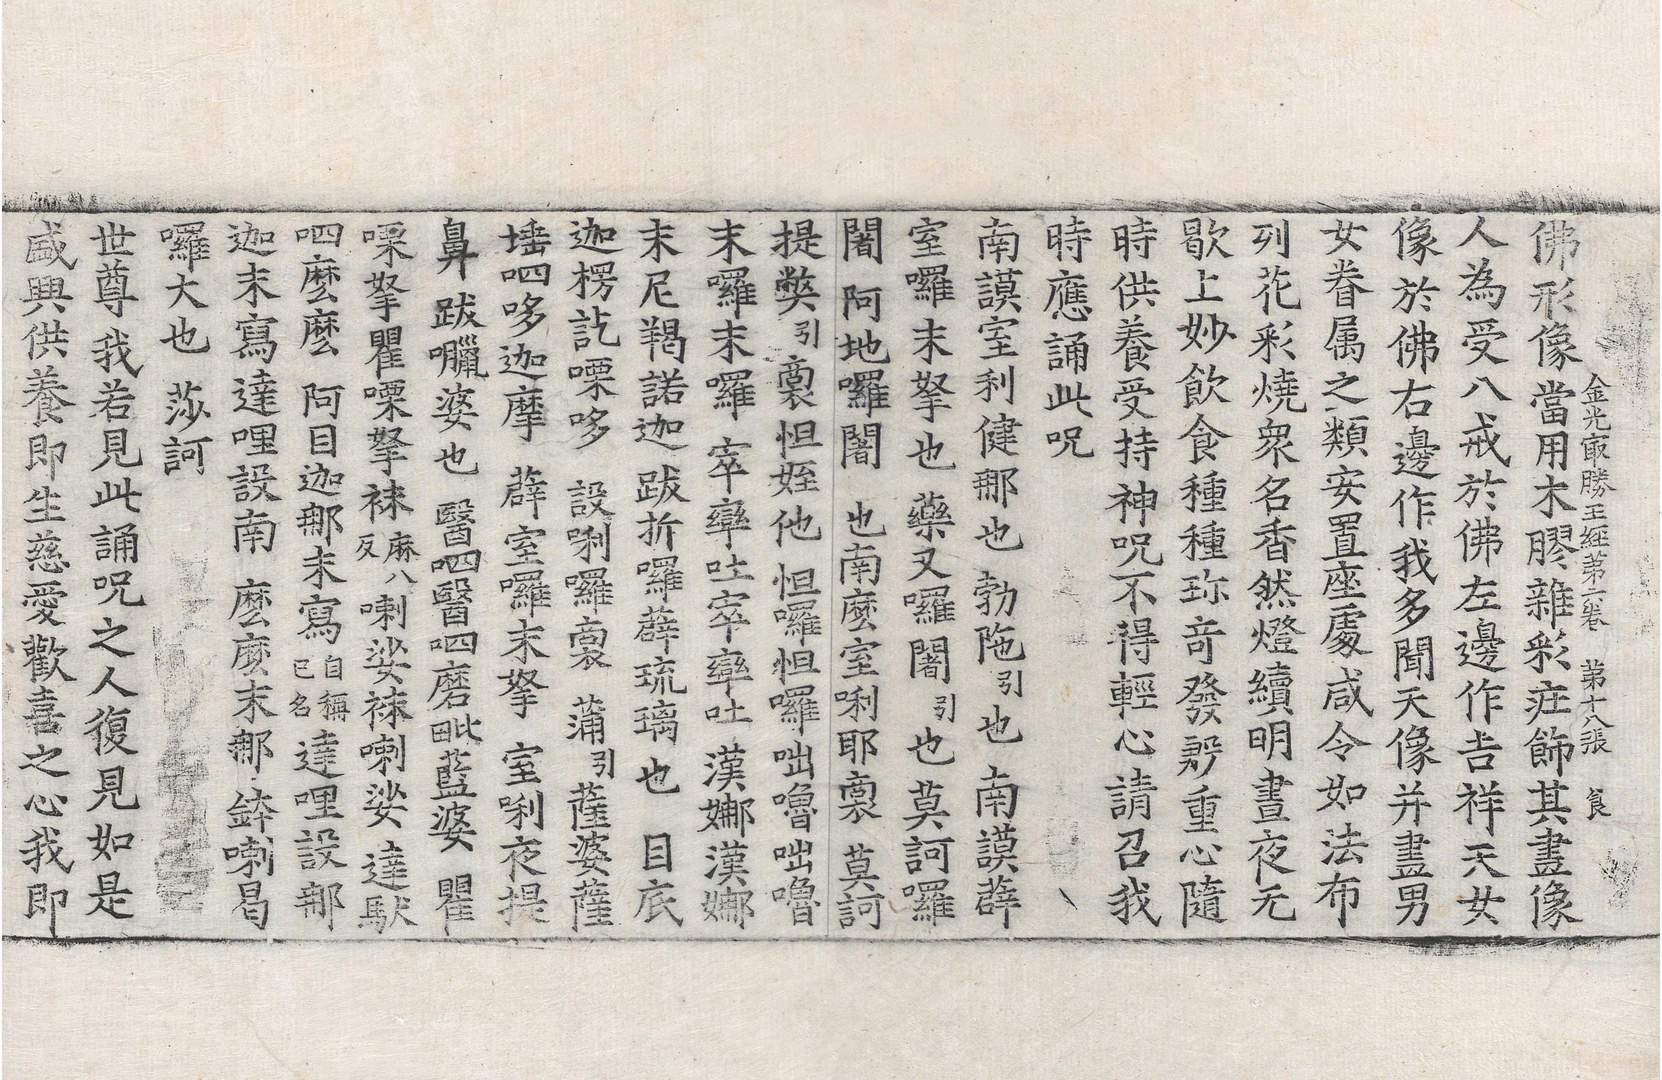 金光㝡勝王經第六卷　第十八張　食
佛形像當用木膠雜彩㽵飾其畫像
人為受八戒於佛左邊作吉祥天女
像於佛右邊作我多聞天像并畫男
女眷属之類安置座處咸令如法布
列花彩燒衆名香然燈續明晝夜无
歇上妙飲食種種珎奇發慇重心隨
時供養受持神呪不得輕心請召我
時應誦此呪
南謨室利健那也　勃陁引也　南謨薜
室囉末拏也　藥叉囉闍引也　莫訶囉
闍　阿地囉闍　也南麼室唎耶裔　莫訶
提弊引裔怛姪他　怛囉怛囉咄嚕咄嚕
末囉末囉　窣率吐窣率吐　漢娜漢娜
末尼羯諾迦　跋折囉薜琉璃也　目底
迦楞訖㗚哆　設唎囉裔　蒲引薩婆薩
埵呬哆迦摩　薜室囉末拏　室唎夜提
鼻　跋臘婆也　醫呬醫呬磨毗藍婆　瞿
㗚拏瞿㗚拏袜麻八反喇娑袜喇娑　達馱
呬麼麼　阿目迦那末寫自稱已名達哩設那
迦末寫達哩設南　麼麼末那　鉢喇曷
囉大也　莎訶
世尊我若見此誦呪之人復見如是
盛興供養即生慈愛歡喜之心我即